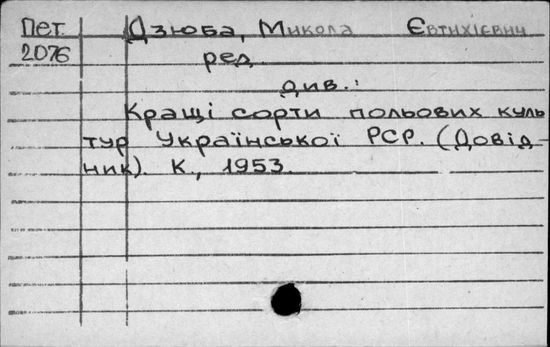 Пет. Дзюба, Микола Євтихієвич
2076 ред.
див.:
Кращі сорти польових куль
тур Української РСР. (Довід
ник). К., 1953.